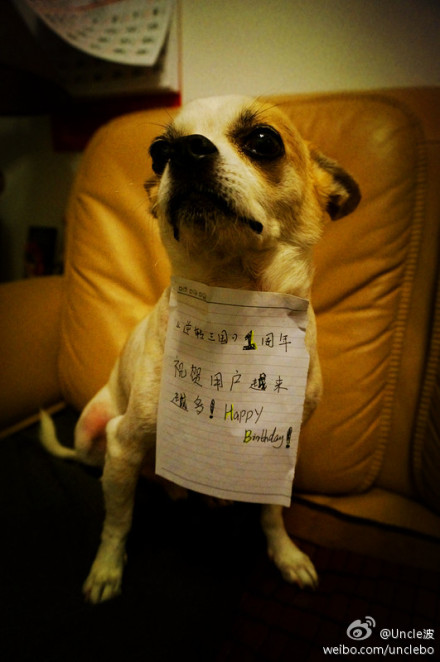 《逆转三国》1周年
祝贺用户越来
越多! Happy
Birthday!
@Uncle波
weibo.com/unclebo